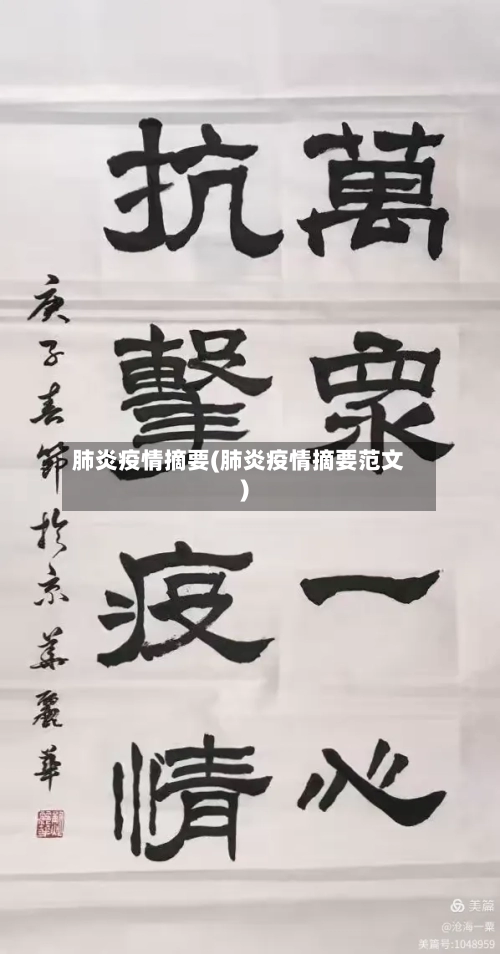 萬眾一心
抗擊疫情
庚子春節於京華麗華
肺炎疫情摘要(肺炎疫情摘要范文
)
美篇
@沧海一粟
美篇号:1048959